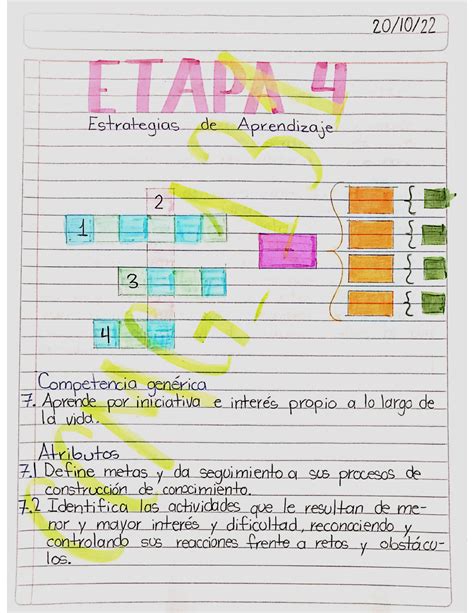 20/10/22
ETAPA 4
Estrategias de Aprendizaje
2
1
3
4
Competencia genérica
7. Aprende por iniciativa e interés propio a lo largo de
la vida.
Atributos
7.1 Define metas y da seguimiento a sus procesos de
construcción de conocimiento.
7.2 Identifica las actividades que le resultan de me-
nor y mayor interés y dificultad, reconociendo y
controlando sus reacciones frente a retos y obstácu-
los.